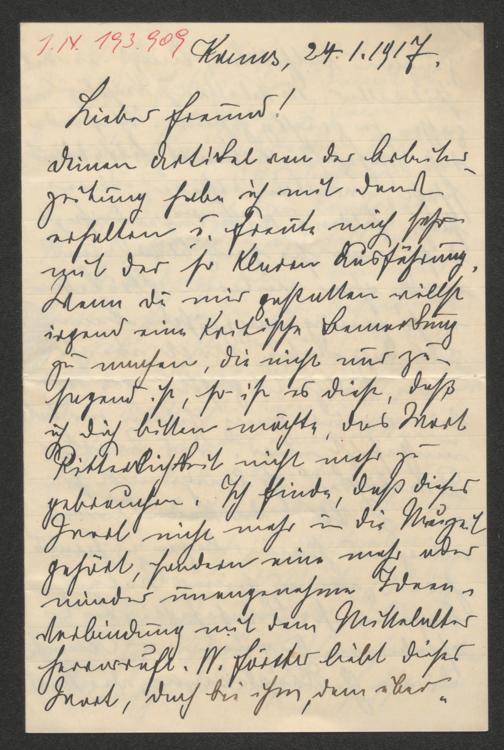 I. N. 193.909
Krems, 24.1.1917.
Lieber Freund!
Deinen Artikel von der Arbeiter-
zeitung habe ich mit Dank
erhalten u. freute mich sehr
mit der so klaren Ausführung.
Wenn du mir gestatten willst
irgend eine kritische Bemerkung
zu machen, die nicht nur zu-
sagend ist, so ist es diese, daß
ich dich bitten möchte, das Wort
Ritterlichkeit nicht mehr zu
gebrauchen. Ich finde, daß dieses
Wort nicht mehr in die Neuzeit
gehört, sondern eine mehr oder
minder unangenehme Ideen-
verbindung mit dem Mittelalter
hervorruft. W. Förster liebt dieses
Wort, doch bei ihm, dem über-